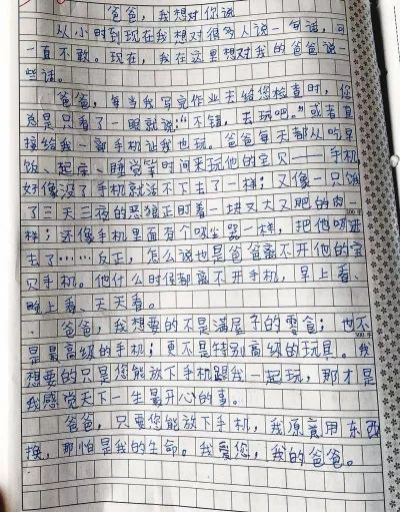 爸爸，我想对你说
从小时到现在我想对很多人说一句话，可
一直不敢。现在，我在这里想对我的爸爸说一
些话。
爸爸，每当我写完作业去给您检查时，您
总是只看了一眼就说：“不错，去玩吧。”或者直
接给我一部手机让我也玩。爸爸每天都从吃早
饭、起床、睡觉等时间来玩他的宝贝——手机
好像没了手机就活不下去了一样；又像一只饿
了三天三夜的恶狼正盯着一块又大又肥的肉一
样；还像手机里面有个吸尘器一样，把他吸进
去了……反正，怎么说也是爸爸离不开他的宝
贝手机。他什么时候都离不开手机，早上看、
晚上看、天天看。
爸爸，我想要的不是满屋子的零食；也不
是最高级的手机；更不是特别高级的玩具。我
想要的只是您能放下手机跟我一起玩，那才是
我感觉天下一生最开心的事。
爸爸，只要您能放下手机，我愿意用东西
换，那怕是我的生命。我爱您，我的爸爸。